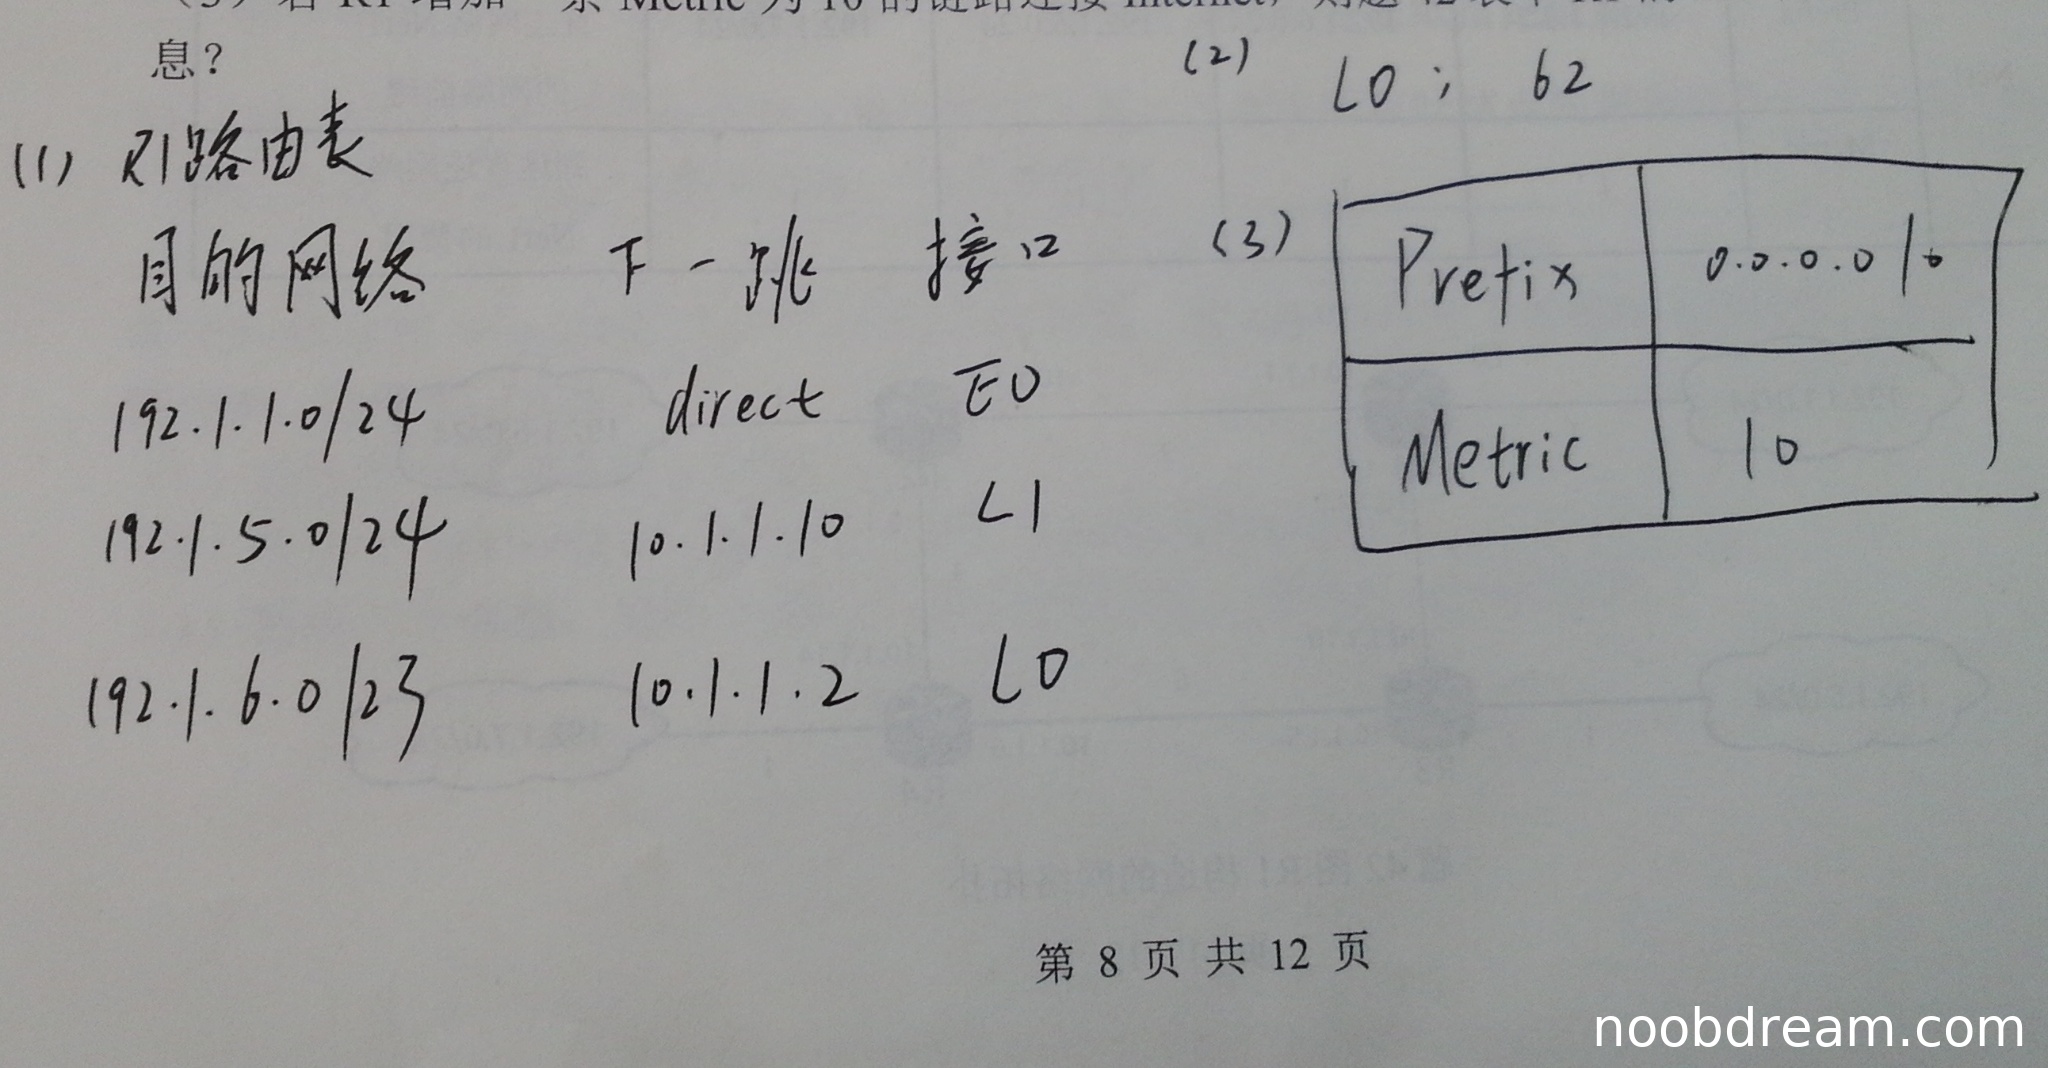 息？
(1) R1路由表
目的网络 下一跳 接口
192.1.1.0/24 direct E0
192.1.5.0/24 10.1.1.10 L1
192.1.6.0/23 10.1.1.2 L0
(2) L0; 62
(3) Prefix 0.0.0.0/0
Metric 10
第 8 页 共 12 页
noobdream.com